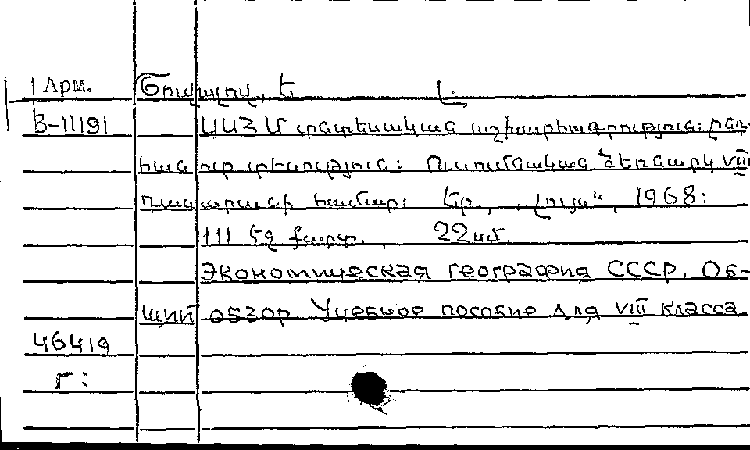 Арм. Շուվալով, Ե Լ.
В-11191 ՍՍՀՄ տնտեսական աշխարհագրություն: Ընդ-
հանուր տեսություն: Ուսումնական ձեռնարկ VIII
դասարանի համար: Եր., „Լույս“, 1968:
111 էջ քարտ., 22սմ.
Экономическая география СССР. Об-
щий обзор Учебное пособие для VIII класса
46419
г: